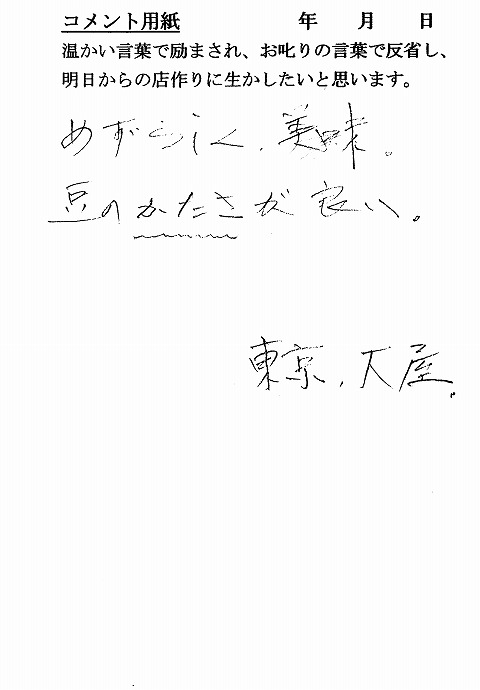 コメント用紙 年 月 日
温かい言葉で励まされ、お叱りの言葉で反省し、
明日からの店作りに生かしたいと思います。
めずらしく、美味。
豆のかたさが良い。
東京、大屋。